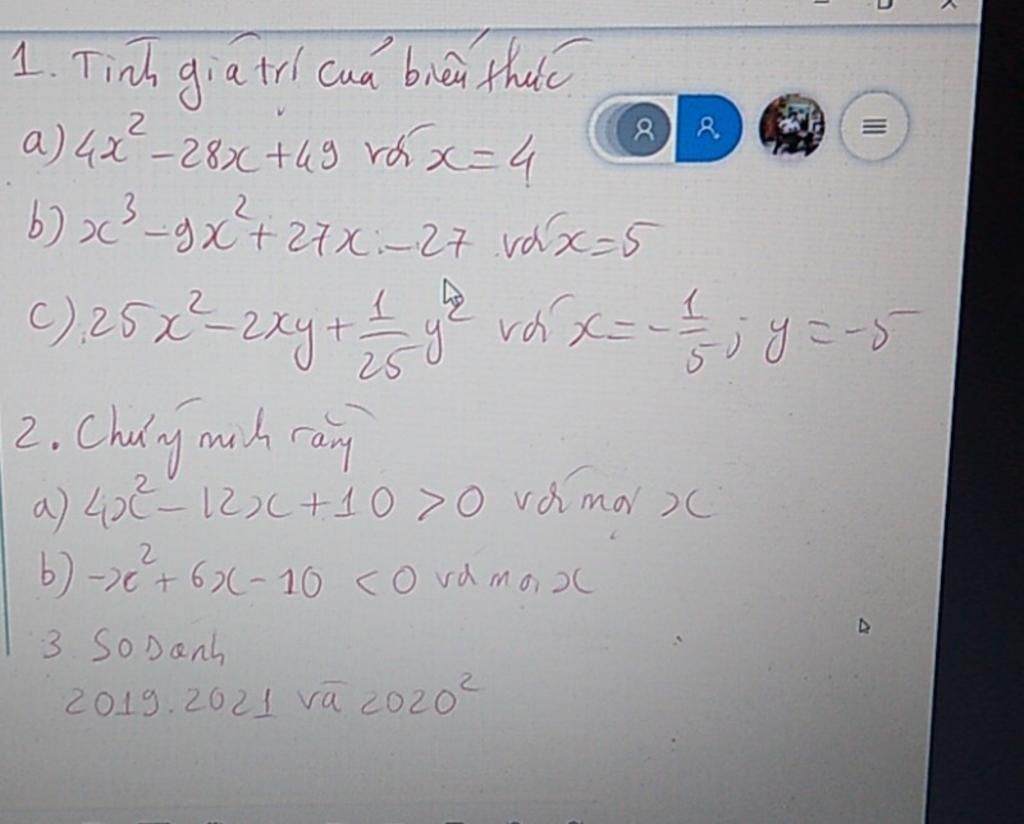 1. Tính giá trị của biểu thức
a) 4x² - 28x + 49 với x = 4
b) x³ - 9x² + 27x - 27 với x = 5
c) 25x² - 2xy + 1/25 y² với x = -1/5; y = -5
2. Chứng minh rằng
a) 4x² - 12x + 10 > 0 với mọi x
b) -x² + 6x - 10 < 0 với mọi x
3 So Sánh
2019.2021 và 2020²